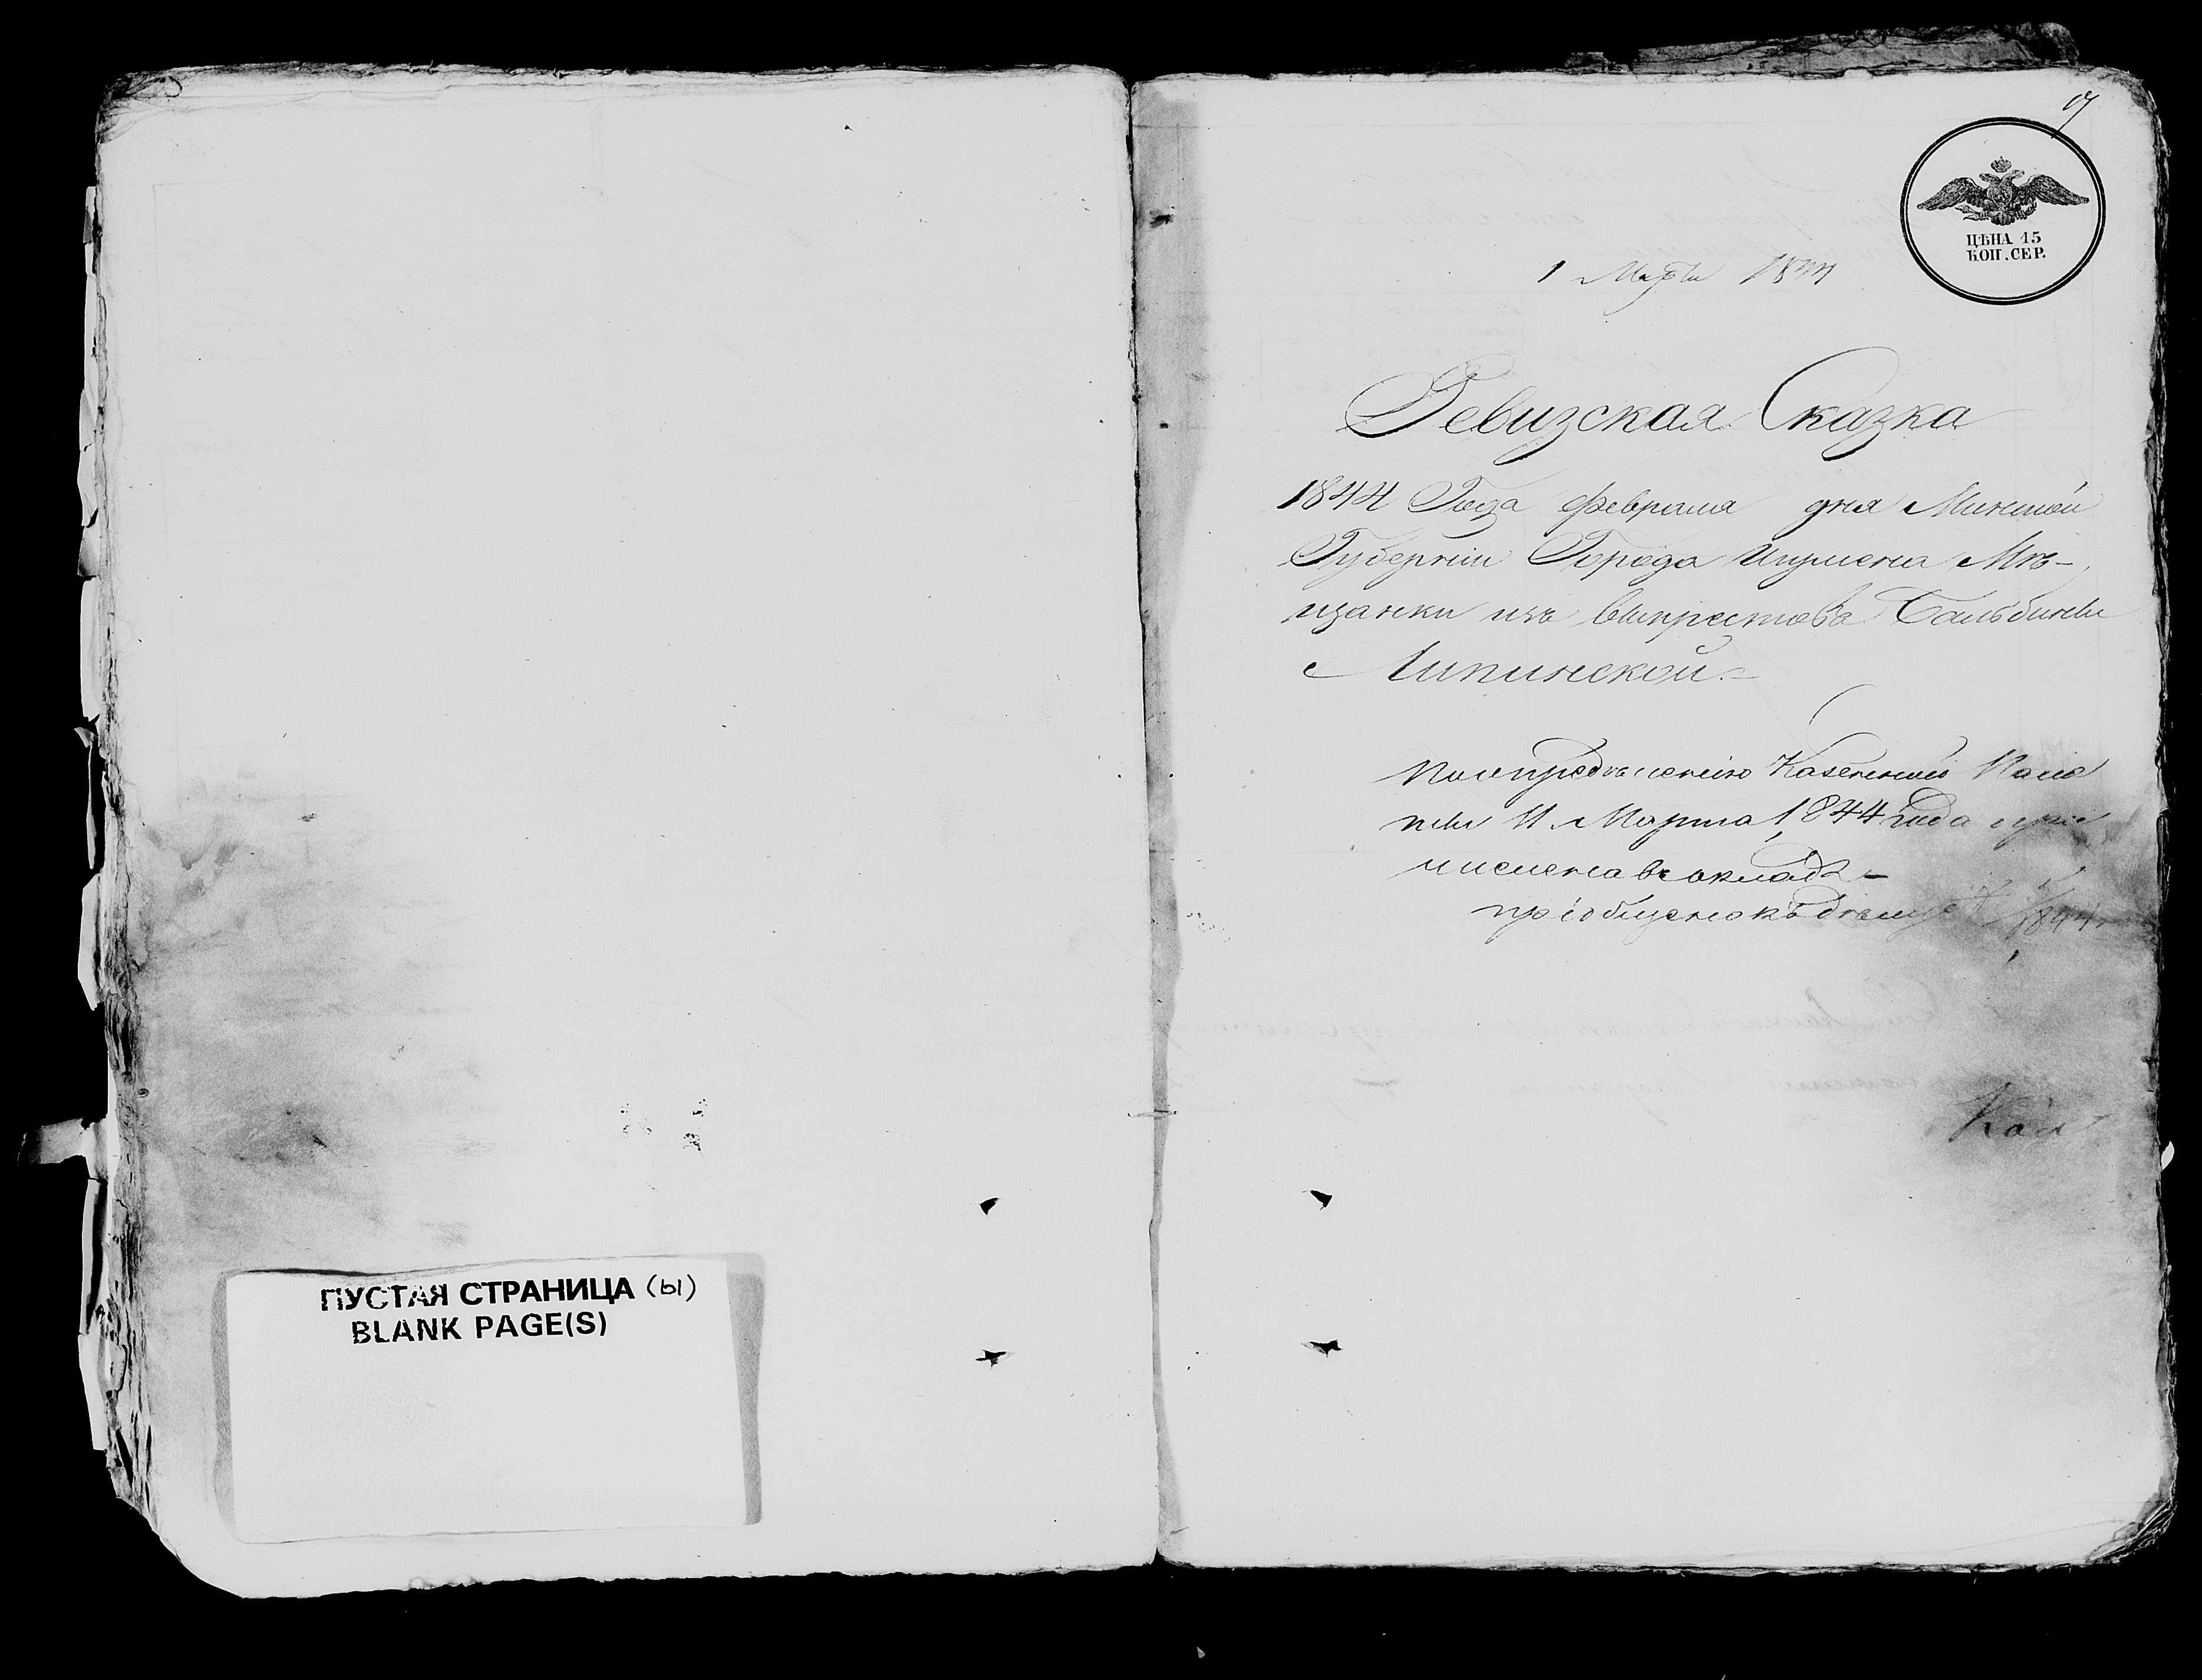 ПУСТАЯ СТРАНИЦА (Ы)
BLANK PAGE(S)
ЦѢНА 15
КОП. СЕР.
1 Марта 1844
Ревизская Сказка
1844 Года Февраля дня Минской
Губернии Города Игумена Мѣ-
щанки изъ выкрестовъ Бальбины
Липинской.
По опредѣленію Казенной Пала
ты 11 Марта 1844 года при
числена въ окладъ -
пріобщено къ дѣлу
1844